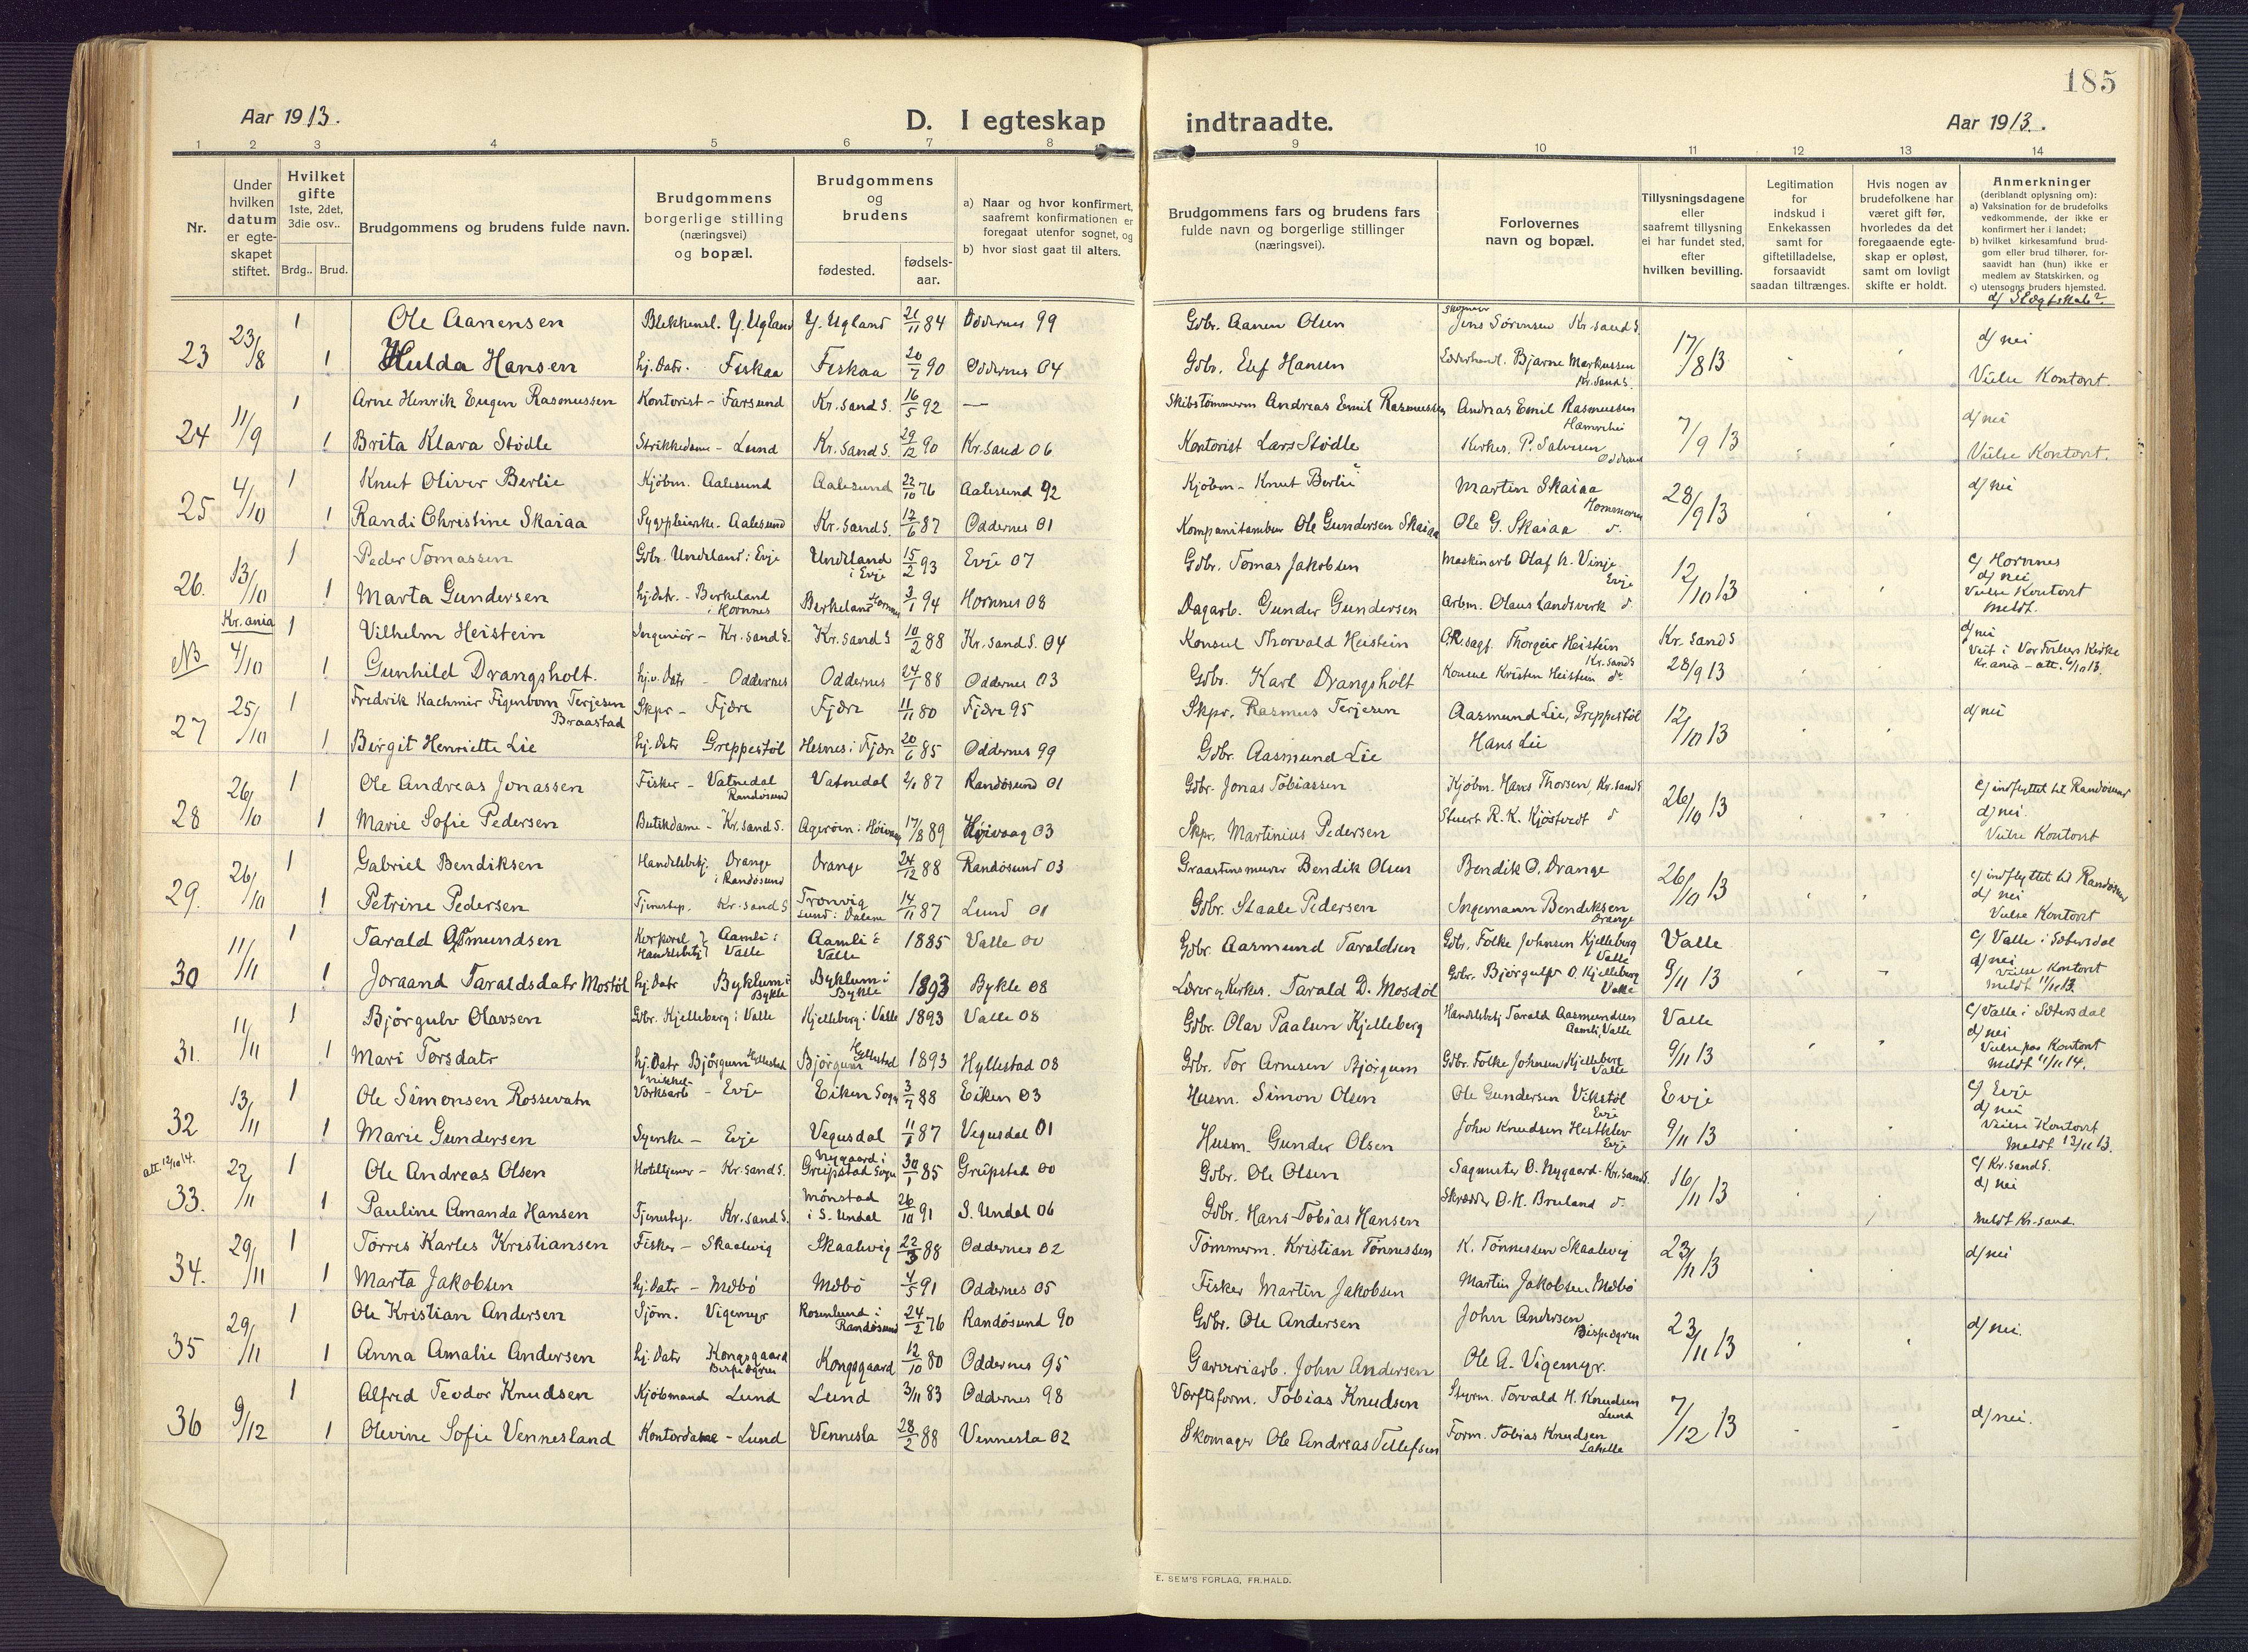 185
Aar 1913.
D. I egteskap indtraadte.
Aar 1913.
1 2 3 4 5 6 7 8 9 10 11 12 13 14
Nr.
Under hvilken datum er egteskapet stiftet.
Hvilket gifte 1ste, 2det, 3die osv..
Brdg.. Brud.
Brudgommens og brudens fulde navn.
Brudgommens borgerlige stilling (næringsvei) og bopæl.
Brudgommens og brudens
fødested. fødselsaar.
a) Naar og hvor konfirmert, saafremt konfirmationen er foregaat utenfor sognet, og
b) hvor sidst gaat til alters.
Brudgommens fars og brudens fars fulde navn og borgerlige stillinger (næringsvei).
Forlovernes navn og bopæl.
Tillysningsdagene eller saafremt tillysning ei har fundet sted, efter hvilken bevilling.
Legitimation for indskud i Enkekassen samt for giftetilladelse, forsaavidt saadan tiltrænges.
Hvis nogen av brudefolkene har været gift før, hvorledes da det foregaaende egteskap er opløst, samt om lovligt skifte er holdt.
Anmerkninger (deriblandt oplysning om):
a) Vaksination for de brudefolks vedkommende, der ikke er konfirmert her i landet;
b) hvilket kirkesamfund brudgom eller brud tilhører, forsaavidt han (hun) ikke er medlem av Statskirken, og
c) utensogns bruders hjemsted.
d/ Slegtskab?
23 23/8 1 Ole Aanensen Blekkensl. Y. Ugland Y. Ugland 21/11 84 Oddernes 99 Gdbr. Aanen Olsen Skomager Jens Sørensen Kr.sand S. 17/8 13 d/ nei
1 Hulda Hansen hj. Datr. Fiskaa Fiskaa 20/7 90 Oddernes 04 Gdbr. Elef Hansen Læderhandl. Bjarne Markussen Kr.sand S. Vielse Kontort.
24 11/9 1 Arne Henrik Eugen Rasmussen Kontorist - Farsund Kr.sand S. 16/5 92 — Skibstømmerm Andreas Emil Rasmussen Andreas Emil Rasmussen 7/9 13 d/ nei
1 Brita Klara Stödle Strikkedame - Lund Kr.sand S. 29/12 90 Kr.sand 06 Kontorist Lars Stödle Kirkes. P. Salvesen Oddernes Vielse Kontort.
25 4/10 1 Knut Oliver Berlie Kjöbm. Aalesund Aalesund 22/10 76 Aalesund 92 Kjöbm - Knut Berlie Martin Skaiaa 28/9 13 d/ nei
1 Randi Christine Skaiaa Sygepleierske - Aalesund Kr.sand S. 17/6 87 Oddernes 01 Kompanitambur Ole Gundersen Skaiaa Ole G. Skaiaa d.
26. 13/10 1 Peder Tomassen Gdbr. Undeland i Evje Undeland i Evje 15/2 93 Evje 07 Gdbr. Tomas Jakobsen Maskinarb Olaf K. Vinje Evje 12/10 13 c/ Hornnes d/ nei
1 Marta Gundersen hj. datr. - Birkeland i Hornnes Birkeland Hornnes 3/1 94 Hornnes 08 Dagarb. Gunder Gundersen Arbm. Olaus Landsverk d. Vielse Kontort Meldt.
NB Kr.ania 4/10 1 Vilhelm Heistein Ingeniør - Kr.sand S. Kr.sand S 10/2 88 Kr.sand S. 04 Konsul Thorvald Heistein O.R.sagf. Thorgeir Heistein Kr.sand S Kr.sand S d/ nei
1 Gunhild Drangsholt. hj.v. Datr - Oddernes Oddernes 24/1 88 Oddernes 03 Gdbr. Karl Drangsholt Konsul Kristen Heistein do 28/9 13 Viet i Vor Frelsers Kirke Kr.ania - att. 4/10 13.
27 25/10 1 Fredrik Kachmir Figenbom Terjesen Braastad Skpr - Fjære Fjære 11/11 80 Fjære 95 Skpr. Rasmus Terjesen Aasmund Lie, Greppestöl 12/10 13 d/ nei
1 Birgit Henriette Lie hj. Datr Greppestöl Hesnes i Fjære 20/6 85 Oddernes 99 Gdbr. Aasmund Lie Hans Lie
28 26/10 1 Ole Andreas Jonassen Fisker - Vatnedal Randösund Vatnedal 2/1 87 Randösund 01 Gdbr. Jonas Tobiassen Kjöbm. Hans Thorsen, Kr.sand S 26/10 13 c/ indflyttet til Randösund d/ nei.
1 Marie Sofie Pedersen Butikdame - Kr.sand S. Ageröen i Höivaag 17/8 89 Höivaag 03 Skpr. Martinius Pedersen Stuert R. K. Kjöstvedt d Vielse Kontort
29. 26/10 1 Gabriel Bendiksen Handelsbetj. Drange i Randösund Drange 24/12 88 Randösund 03 Graastensmurer Bendik Olsen Bendik O. Drange 26/10 13 c/ indflyttet til Randösund d/ nei
1 Petrine Pedersen Tjenestep. Kr.sand S Tronvig 14/11 87 Lund 01 Gdbr. Staale Pedersen Ingemann Bendiksen Drange Vielse Kontort
30 11/11 1 Tarald Asmundsen Korporal & Handelsbetj. Aamli i Valle Aamli i Valle 1885 Valle 00 Gdbr. Aasmund Taraldsen Gdbr. Folke Johnsen Kjelleberg Valle Valle c/ Valle i Sætersdal d/ nei
1 Joraand Taraldsdatr Mostöl hj. Datr Byklum i Bykle Byklum i Bykle 1893 Bykle 08 Lærer og Kirkes. Tarald D. Mosdöl Gdbr. Björgulv O. Kjelleberg Valle 9/11 13 Vielse Kontort Meldt 11/11 13.
31. 11/11 1 Björgulv Olavsen Gdbr. Kjelleberg i Valle Kjelleberg i Valle 1893 Valle 08 Gdbr. Olav Paalsen Kjelleberg Handelsbetj Tarald Aasmundsen Aamli, Valle Valle c/ Valle i Sætersdal d/ nei
1 Mari Torsdatr hj. Datr Björgum Hyllestad Björgum Hyllestad 1893 Hyllestad 08 Gdbr. Tor Arnesen Björgum Gdbr. Folke Johnsen Kjelleberg Valle 9/11 13 Vielse paa Kontort Meldt 11/11 14.
32 13/11 1 Ole Simonsen Rossevatn Nikkel-Værksarb - Evje Eiken Sogn 3/7 88 Eiken 03 Husm. Simon Olsen Ole Gundersen Vikstöl Evje Evje c/ Evje d/ nei
1 Marie Gundersen Syerske - Evje Vegusdal 11/1 87 Vegusdal 01 Husm. Gunder Olsen John Knudsen Hestklev Evje 9/11 13 Vielse Kontort Meldt 13/11 13.
att. 12/10 14.
33. 22/11 1 Ole Andreas Olsen Hoteltjener - Kr.sand S. Nygaard i Greipstad Sogn 30/1 85 Greipstad 00 Gdbr. Ole Olsen Sagmester O. Nygaard - Kr.sand S. 16/11 13 c/ Kr.sand S. d/ nei
1 Pauline Amanda Hansen Tjenestep. Kr.sand S. Mönstad i S. Undal 26/10 91 S. Undal 06 Gdbr. Hans Tobias Hansen Skrædder O. K. Bruland d. Meldt Kr-sand.
34. 29/11 1 Törres Karles Kristiansen Fisker - Skaalevig Skaalevig 22/3 88 Oddernes 02 Tömmerm. Kristian Tönnessen K. Tönnessen Skaalevig 23/11 13 d/ nei
1 Marta Jakobsen hj. Datr - Mæbö Mæbö 4/5 91 Oddernes 05 Fisker Martin Jakobsen Martin Jakobsen Mæbö
35 29/11 1 Ole Kristian Andersen Sjöm. Vigemyr Rosenlund i Randösund 24/2 76 Randösund 90 Gdbr. Ole Andersen John Andersen Bispegren 23/11 13 d/ nei.
1 Anna Amalie Andersen hj. Datr Kongsgaard Bispegren Kongsgaard 12/10 80 Oddernes 95 Garveriarb. John Andersen Ole A. Vigemyr.
36 9/12 1 Alfred Teodor Knudsen Kjöbmand Lund Lund 3/11 83 Oddernes 98 Værftsform. Tobias Knudsen Styrm. Torvald H. Knudsen Lund 7/12 13 d/ nei.
1 Olevine Sofie Vennesland Kontordame - Lund Vennesla 28/2 88 Vennesla 02 Skomager Ole Andreas Tellefsen Form. Tobias Knudsen Lahelle
E. SEM'S FORLAG, FR.HALD.